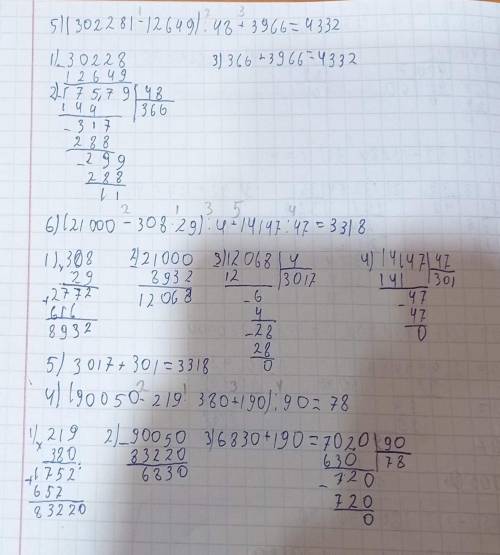 5) (302281-12649):48+3966=4332
1) 30228 3) 366+3966=4332
12649
2) 17579 48
144 366
317
288
299
288
11
6) (21000-308·29):4+14147:47=3318
1) 308 2) 21000 3) 12068 4 4) 14147 47
29 8932 12 3017 141 301
2772 12068 6 47
616 4 47
8932 28 0
28
0
5) 3017+301=3318
4) (90050-219·380+190):90=78
1) 219 2) 90050 3) 6830+190=7020 90
380 83220 630 78
1752 6830 720
657 720
83220 0